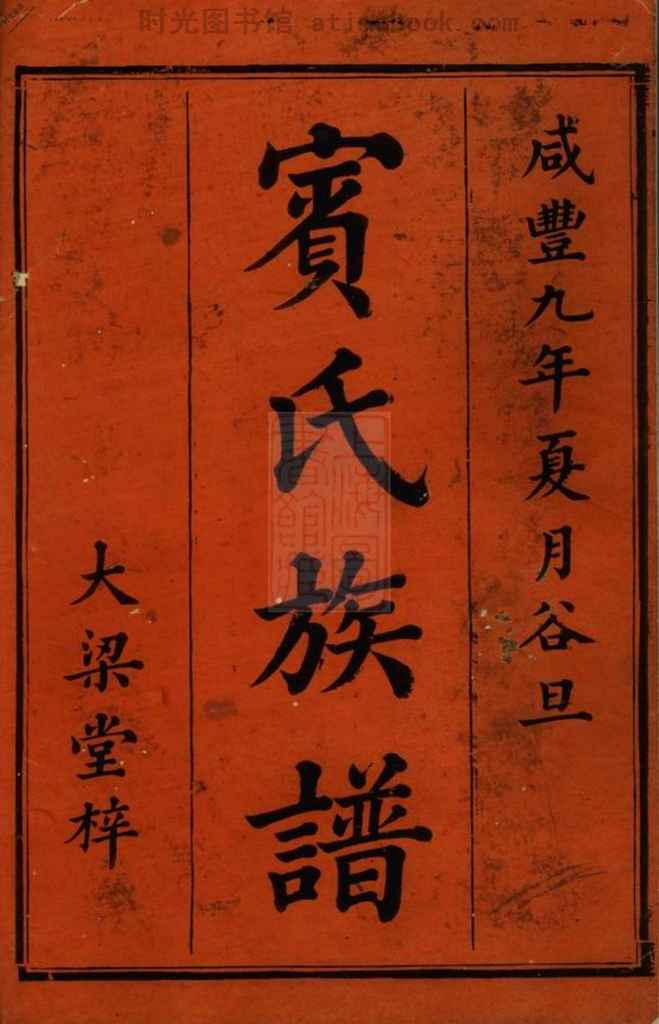 时光图书馆 atimebook.com
咸豐九年夏月谷旦
賓氏族譜
大梁堂梓